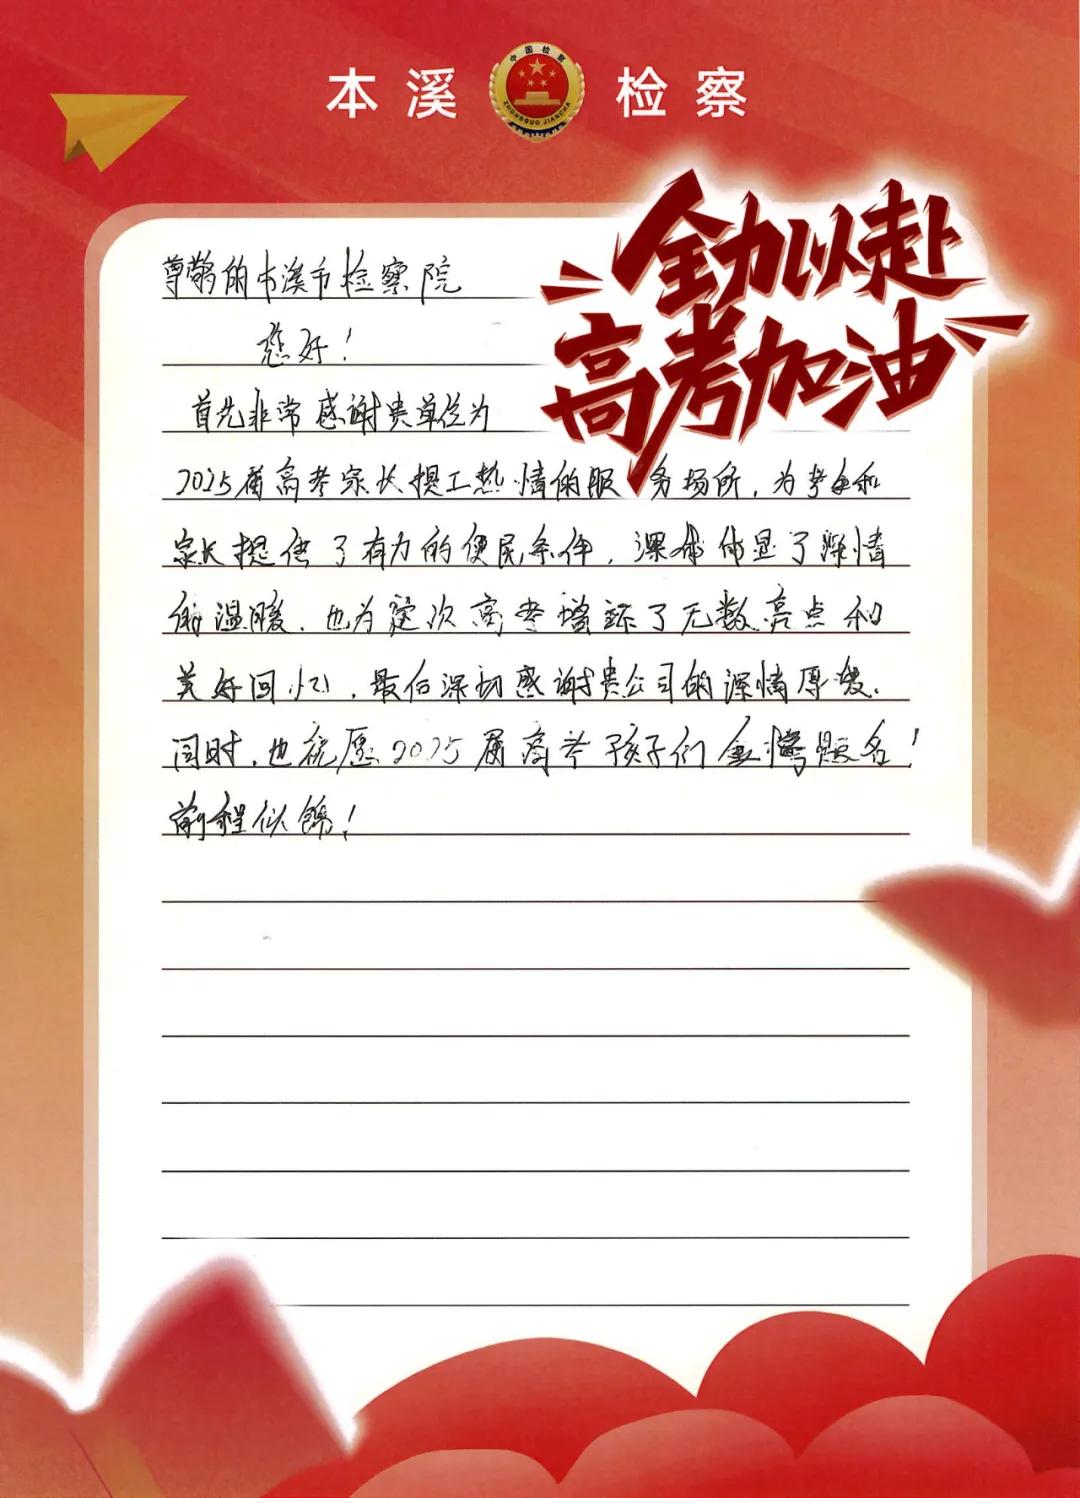 本溪 检察
中国检察
ZHONGGUO JIANCHA
全力以赴
高考加油
尊敬的本溪市检察院
您好！
首先非常感谢贵单位为
2025届高考家长提工热情的服务场所，为考生和
家长提供了有力的便民条件，深感体显了
的温暖，也为这次高考增添了无数亮点和
美好回忆，最后深切感谢贵公司的深情厚爱。
同时，也祝愿2025届高考孩子们金榜题名！
前程似锦！